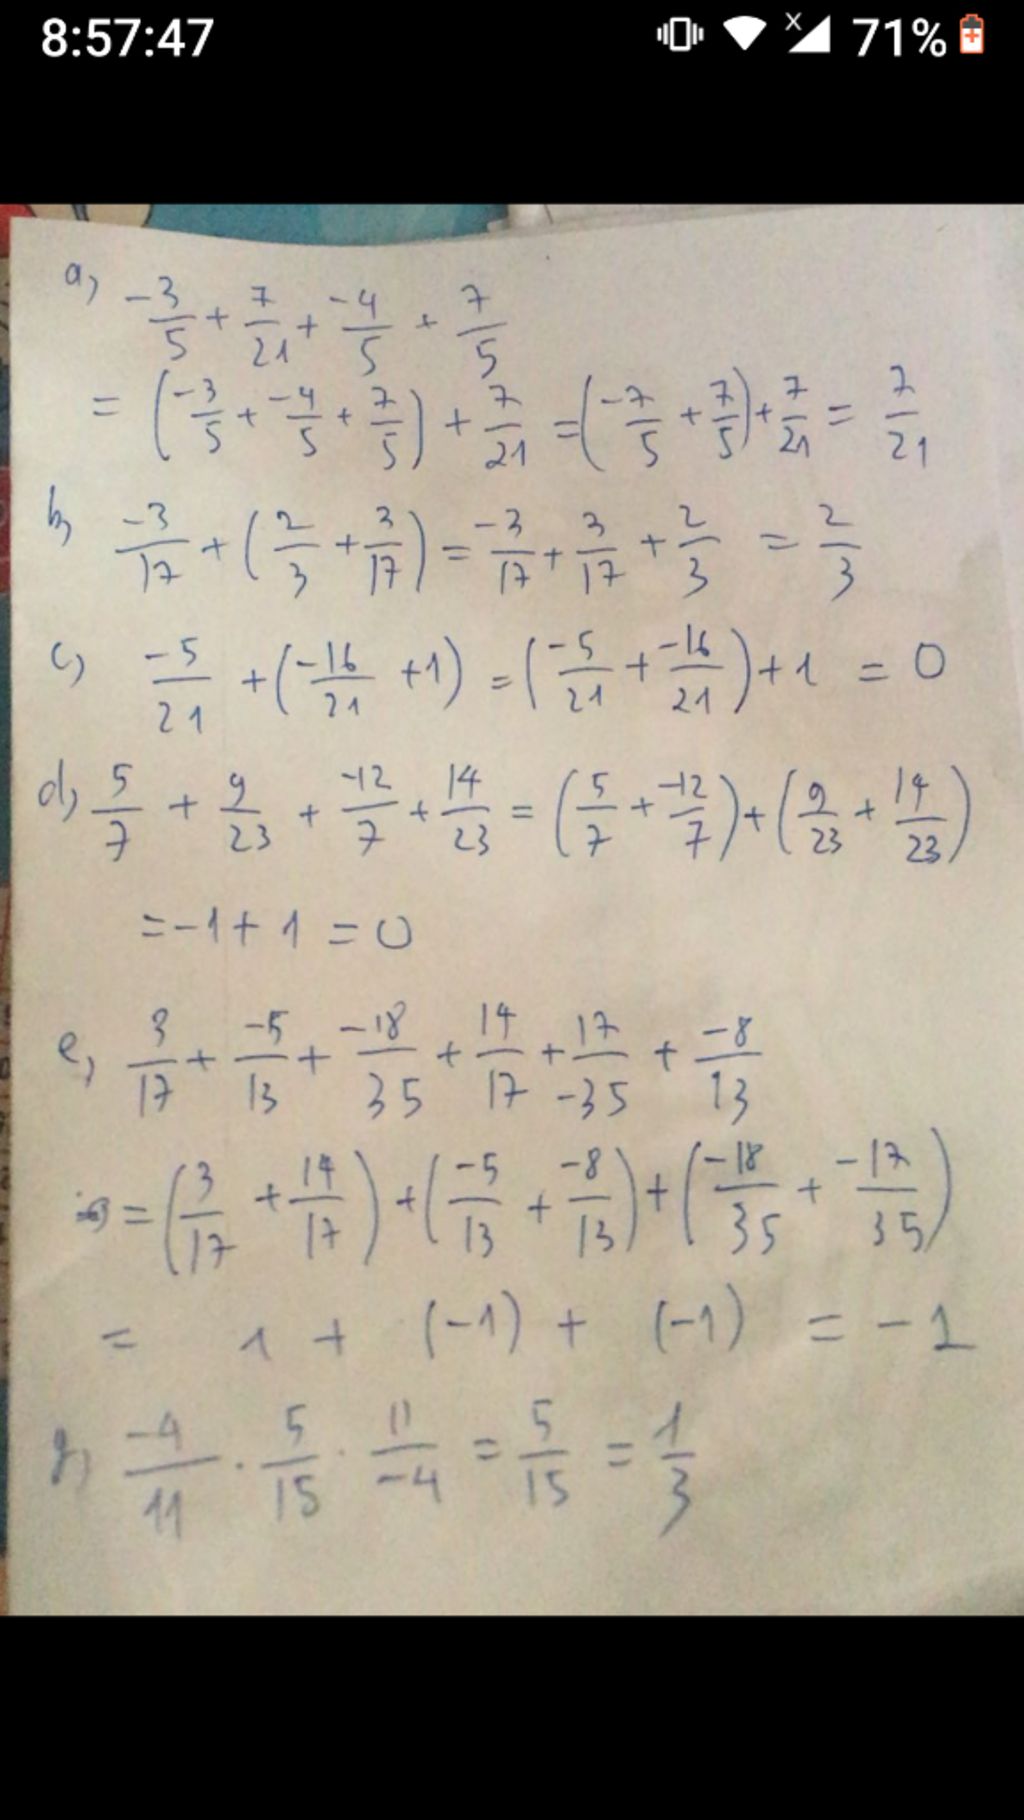 8:57:47 71%
a, -3/5 + 7/21 + -4/5 + 7/5
= (-3/5 + -4/5 + 7/5) + 7/21 = (-7/5 + 7/5) + 7/21 = 7/21
b, -3/17 + (2/3 + 3/17) = -3/17 + 3/17 + 2/3 = 2/3
c, -5/21 + (-16/21 + 1) = (-5/21 + -16/21) + 1 = 0
d, 5/7 + 9/23 + -12/7 + 14/23 = (5/7 + -12/7) + (9/23 + 14/23)
= -1 + 1 = 0
e, 3/17 + -5/13 + -18/35 + 14/17 + 17/-35 + -8/13
= (3/17 + 14/17) + (-5/13 + -8/13) + (-18/35 + -17/35)
= 1 + (-1) + (-1) = -1
-4/11 . 5/15 . 11/-4 = 5/15 = 1/3